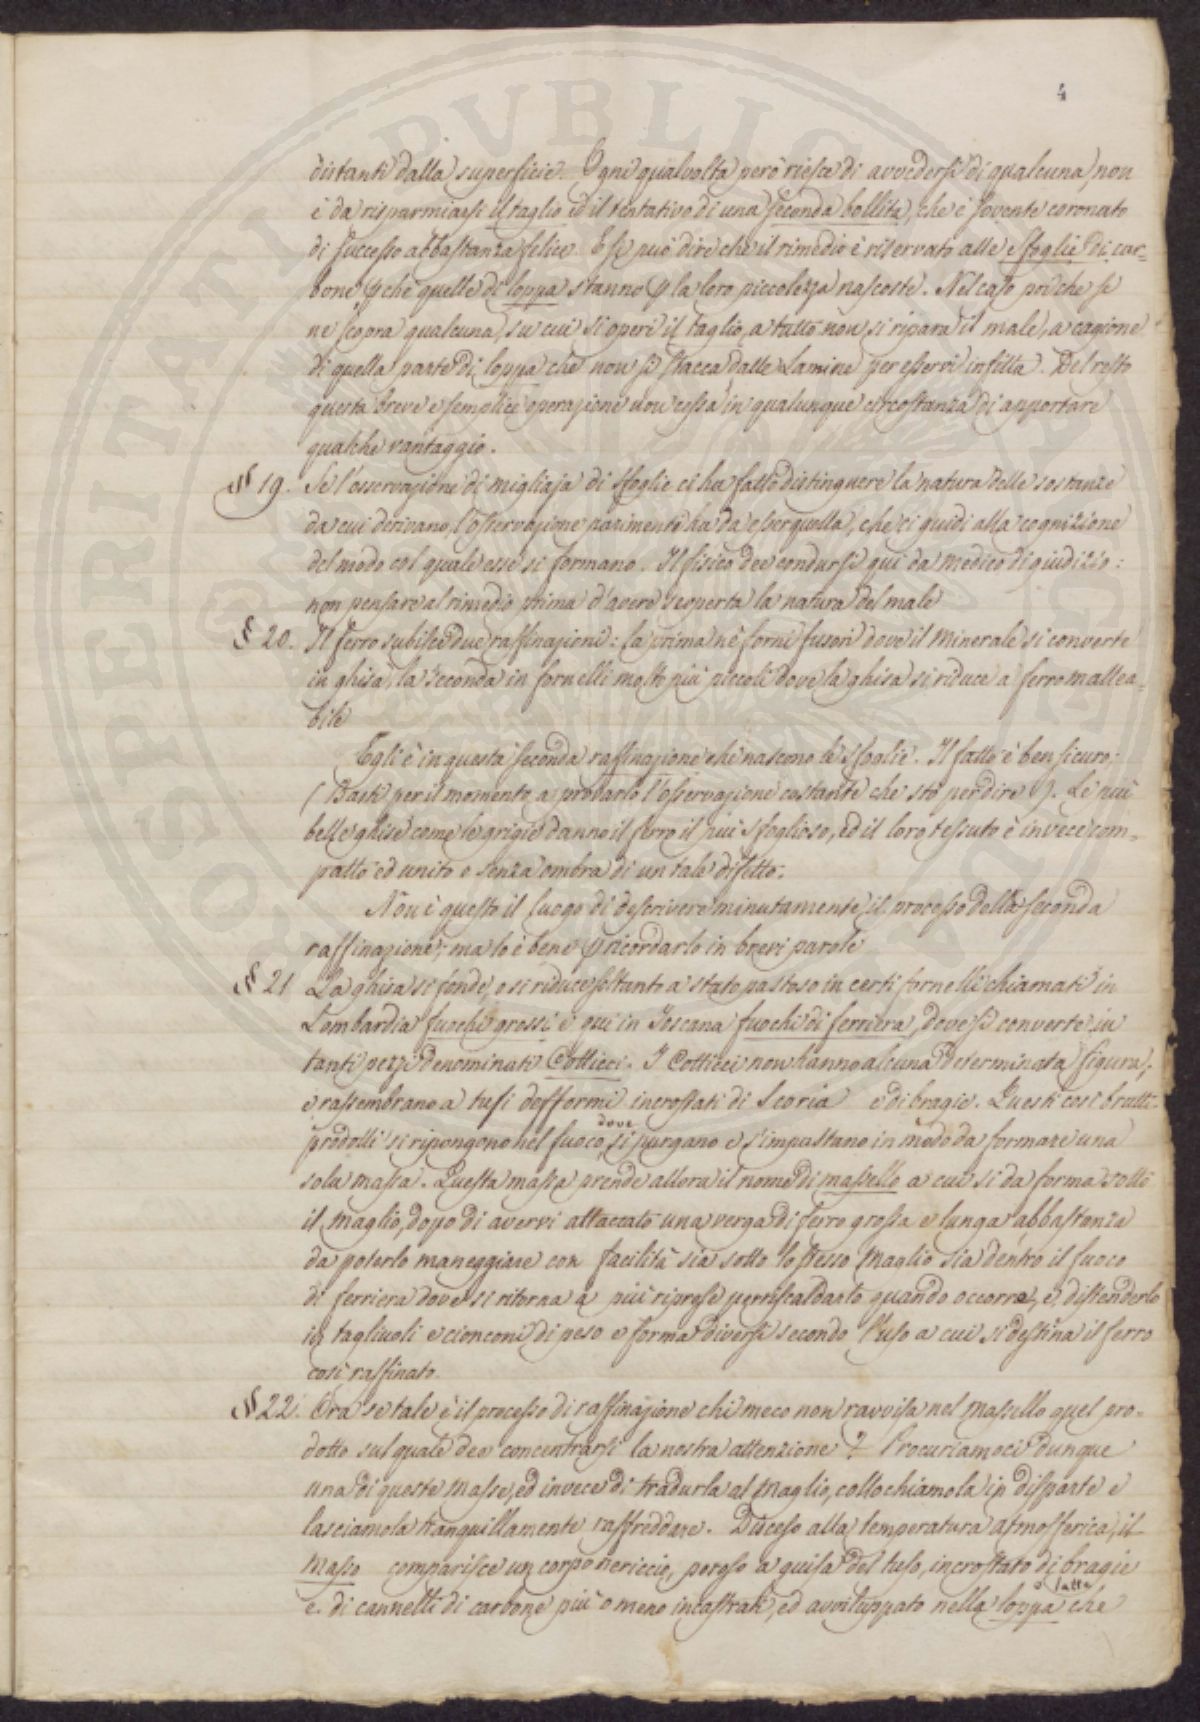 4
distanti dalla superficie. Ogni qualvolta però riesca di avvedersi di qualcuna, non
è da risparmiarsi il taglio ed il tentativo di una seconda bollita, che è sovente coronato
di successo abbastanza felice. E si può dire che il rimedio è riservato alle sfoglie di car=
bone p chè quelle di loppa stanno p la loro piccolezza nascoste. Nel caso poi che se
ne scopra qualcuna, su cui si operi il taglio, a tutto non si ripara il male, a cagione
di quella parte di loppa che non si stacca dalle Lamine per esservi infitta. Del resto
questa breve e semplice operazione non cessa in qualunque circostanza di apportare
qualche vantaggio.
§ 19. Se l'osservazione di migliaja di sfoglie ci ha fatto distinguere la natura delle sostanze
da cui derivano, l'osservazione parimenti ha da esser quella, che ci guidi alla cognizione
del modo col quale esse si formano. Il fisico dee condursi qui da medico di giudizio:
non pensare al rimedio prima d'avere scoperta la natura del male
§ 20. Il ferro subisce due raffinazioni: la prima ne' forni fusori dove il minerale si converte
in ghisa, la seconda in fornelli molto più piccoli dove la ghisa si riduce a ferro mallea=
bile
Egli è in questa seconda raffinazione che nascono le sfoglie. Il fatto è ben sicuro:
(Basti per il momento a provarlo l'osservazione costante che stò per dire). Le più
belle ghise come le grigie danno il ferro il più sfoglioso, ed il loro tessuto è invece com=
patto ed unito e senza ombra di un tale difetto.
Non è questo il luogo di descrivere minutamente il processo della seconda
raffinazione; ma lo è bene p ricordarlo in brevi parole
§ 21 La ghisa si fonde, o si riduce soltanto a stato pastoso in certi fornelli chiamati in
Lombardia fuochi grossi e qui in Toscana fuochi di ferriera, dove si converte in
tanti pezzi denominati Cotticci. I Cotticci non hanno alcuna determinata figura,
e rassembrano a tufi defformi incrostati di Scoria e di bragie. Questi così brutti
prodotti si ripongono nel fuoco, dove si purgano e s'impastano in modo da formare una
sola massa. Questa massa prende allora il nome di massello a cui si da forma sotto
il maglio, dopo di avervi attaccato una verga di ferro grossa e lunga abbastanza
da poterlo maneggiare con facilità sia sotto lo stesso maglio sia dentro il fuoco
di ferriera dove si ritorna a più riprese per riscaldarlo quando occorra, e distenderlo
in tagliuoli e cionconi di peso e forma diversi secondo l'uso a cui si destina il ferro
così raffinato.
§ 22. Ora se tale è il processo di raffinazione chi meco non ravvisa nel massello quel pro=
dotto sul quale deo concentrarsi la nostra attenzione? Procuriamoci dunque
una di queste masse, ed invece di tradurla al maglio, collochiamola in disparte e
lasciamola tranquillamente raffreddare. Disceso alla temperatura atmosferica, il
masso comparisce un corpo nericcio, poroso a guisa del tufo, incrostato di bragie
e di cannelli di carbone più o meno incastrati, ed avviluppato nella loppa o latta che